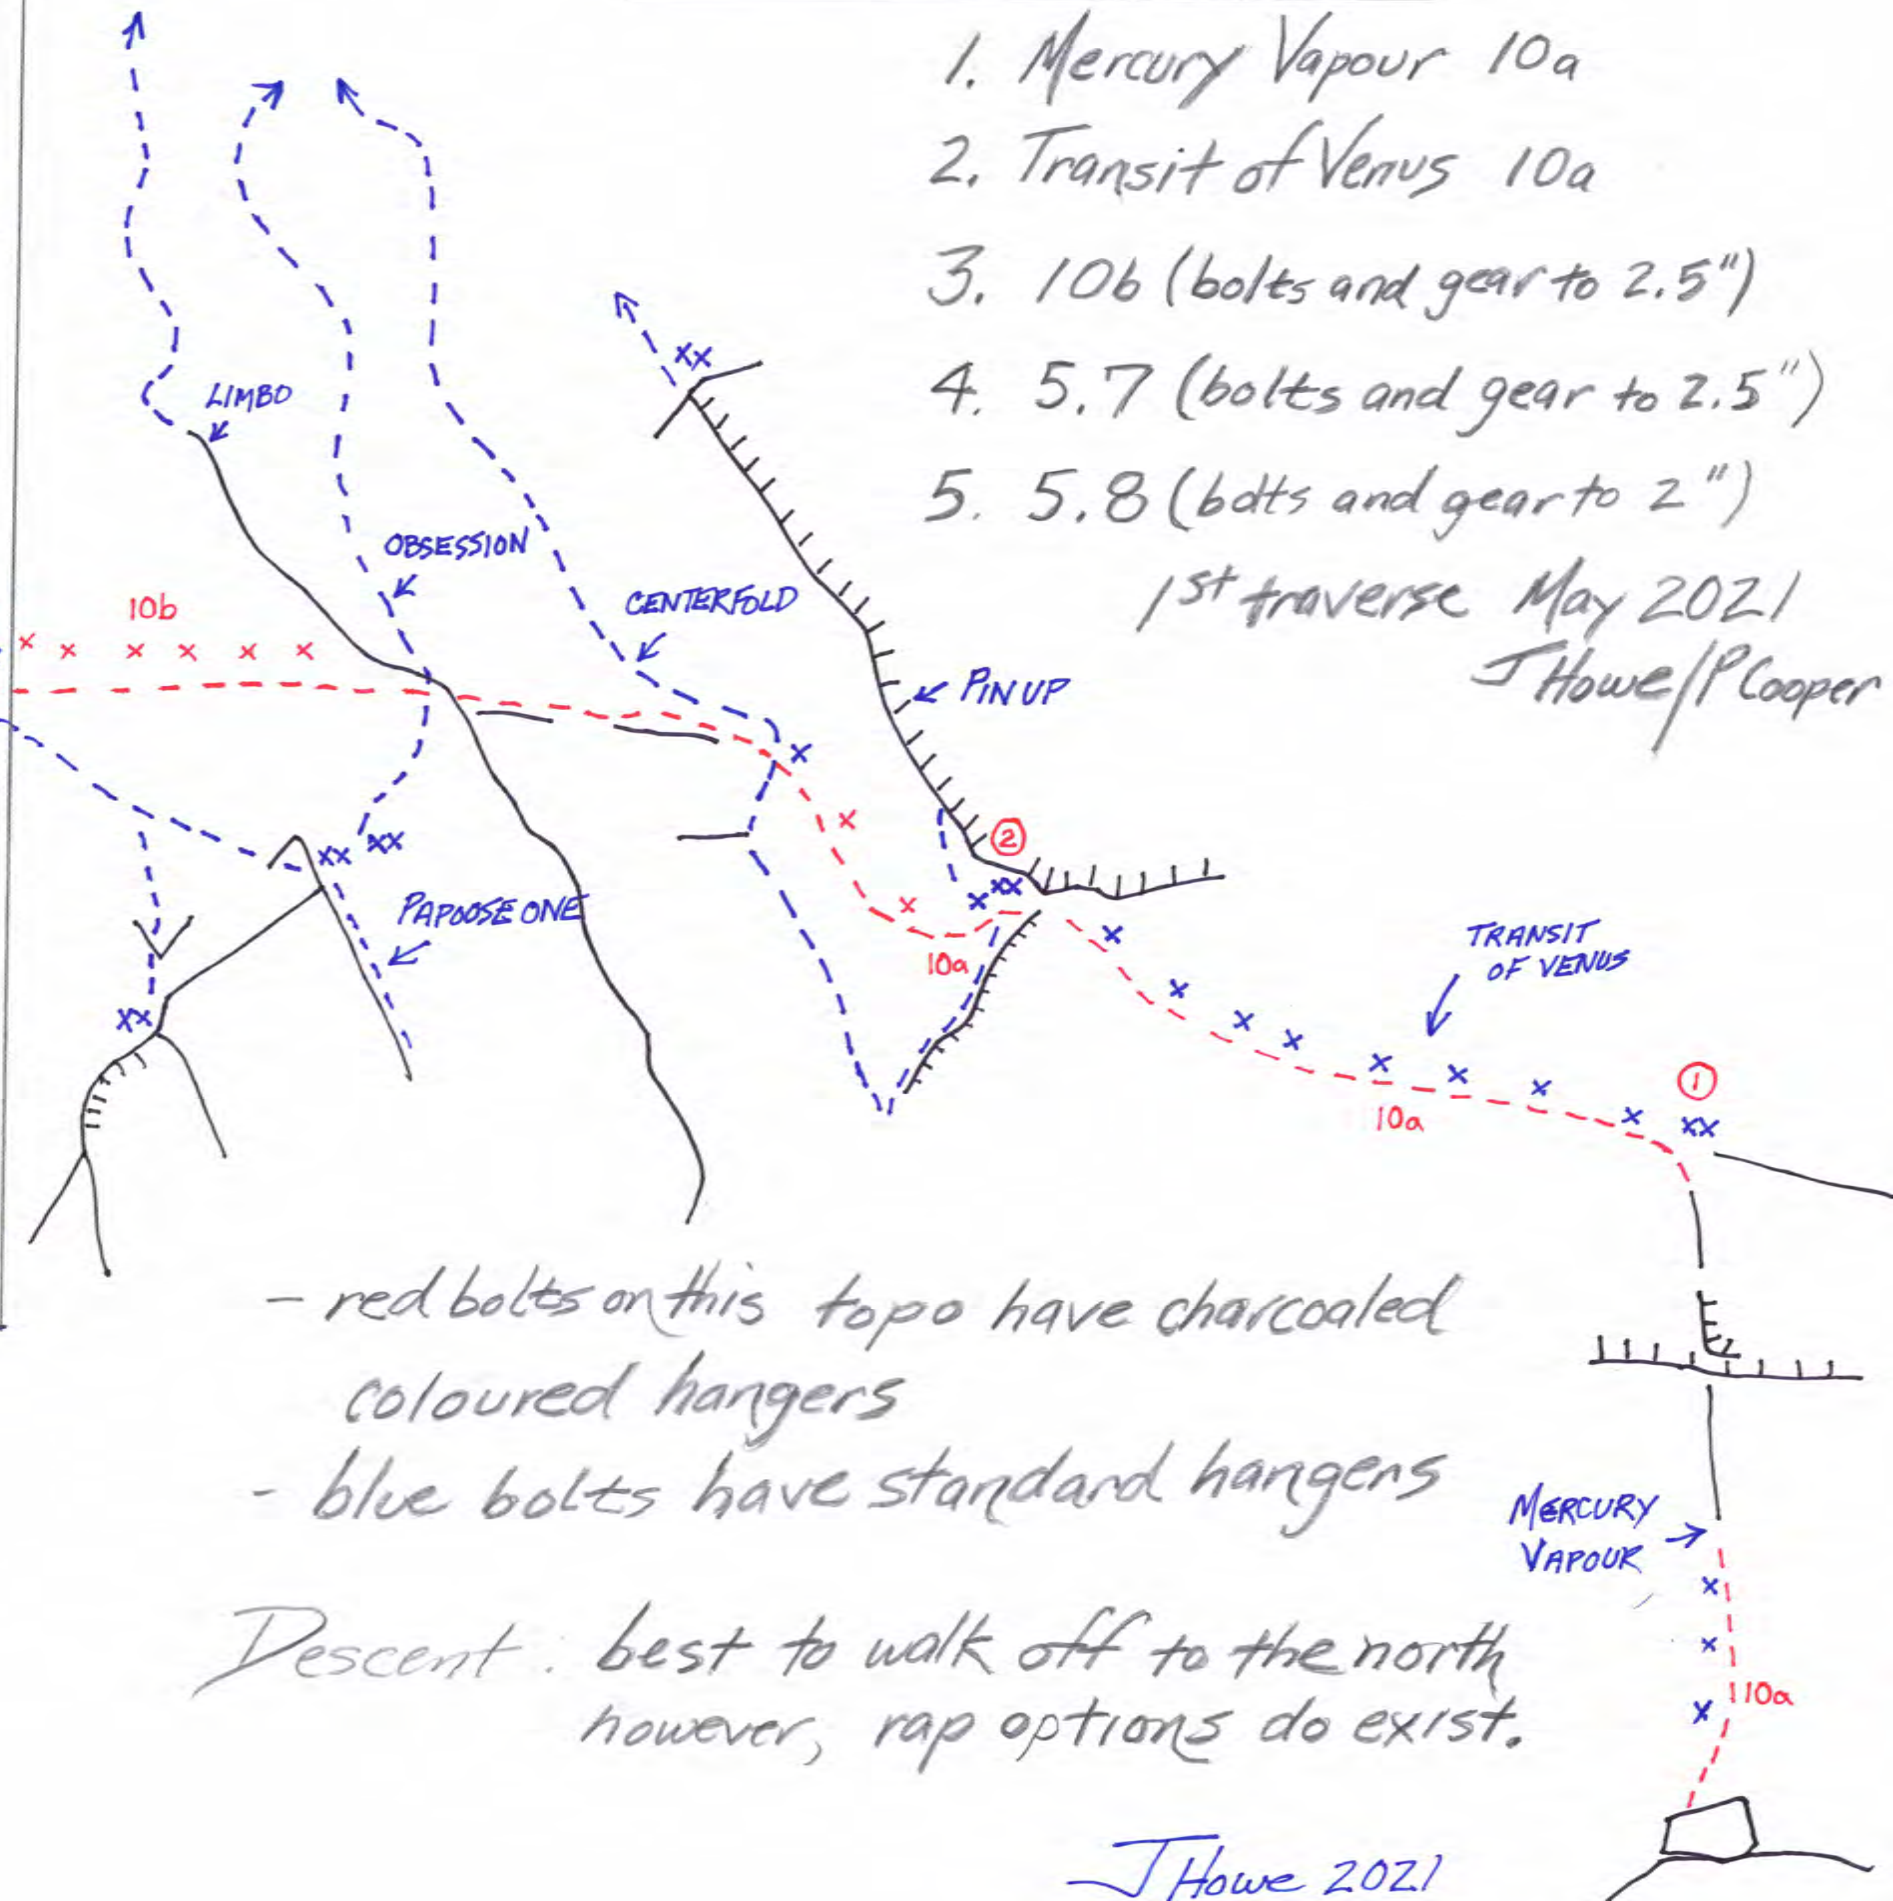 1. Mercury Vapour 10a
2. Transit of Venus 10a
3. 10b (bolts and gear to 2.5")
4. 5.7 (bolts and gear to 2.5")
5. 5.8 (bolts and gear to 2")
1st traverse May 2021
J Howe/P Cooper
LIMBO
OBSESSION
CENTERFOLD
10b
PINUP
2
PAPOOSE ONE
10a
TRANSIT
OF VENUS
1
10a
- red bolts on this topo have charcoaled
coloured hangers
- blue bolts have standard hangers
MERCURY
VAPOUR
10a
Descent: best to walk off to the north
however, rap options do exist.
J Howe 2021